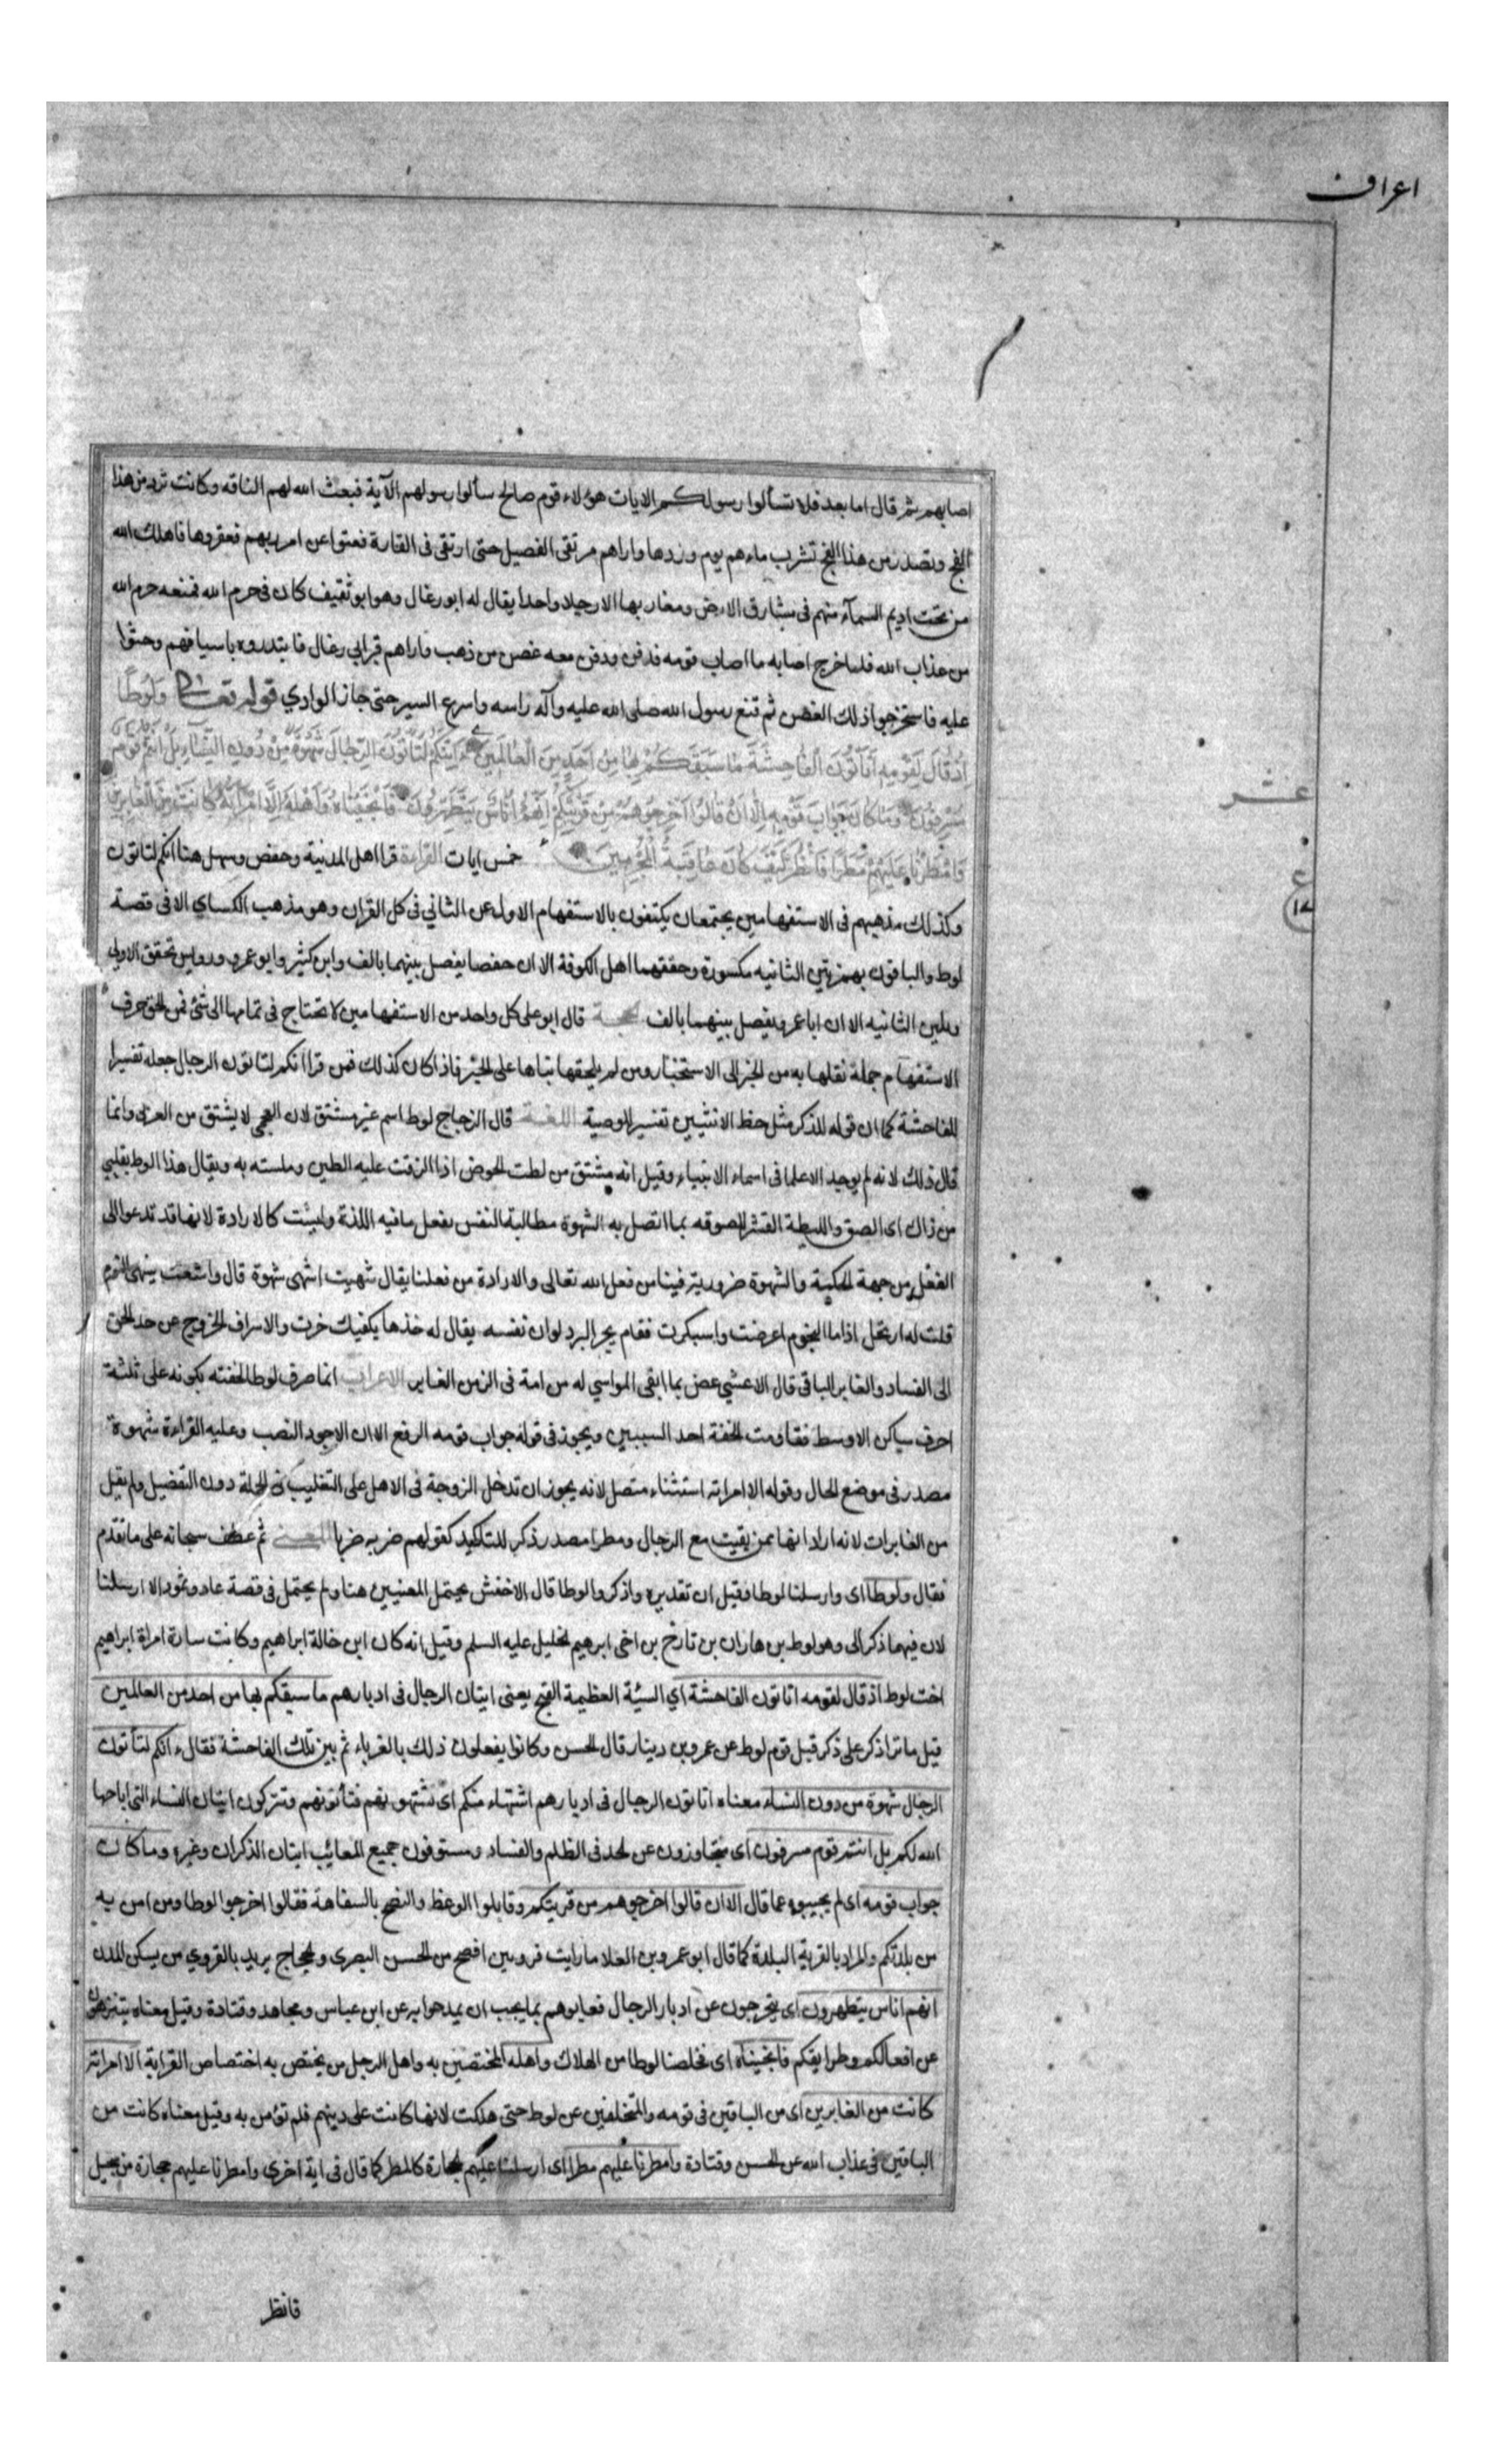 اعراف
اصابهم ثم قال اما بعد فلا تسألوا رسولكم الايات هؤلاء قوم صالح سألوا رسولهم الآية فبعث الله لهم الناقه وكانت ترد من هذا
الفج وتصدر من هذا الفج تشرب ماءهم يوم وردها واراهم مرتقى الفصيل حتى ارتقى فى القارة فعتوا عن امر ربهم فعقروها فاهلك الله
من تحت اديم السمآء منهم فى مشارق الارض ومغاربها الا رجلا واحدا يقال له ابو رغال وهو ابو ثقيف كان فى حرم الله فمنعه حرم الله
من عذاب الله فلما خرج اصابه ما اصاب قومه فدفن ودفن معه غصن من ذهب واراهم قبر ابي رغال فابتدروه باسيافهم وحثوا
عليه فاستخرجوا ذلك الغصن ثم قنع رسول الله صلى الله عليه وآله راسه واسرع السير حتى جاز الوادي قوله تعالى وَلُوطًا
اِذْ قَالَ لِقَوْمِهِ اَتَأْتُونَ الْفَاحِشَةَ مَا سَبَقَكُمْ بِهَا مِنْ اَحَدٍ مِنَ الْعَالَمِينَ ءَاِنَّكُمْ لَتَأْتُونَ الرِّجَالَ شَهْوَةً مِنْ دُونِ النِّسَاءِ بَلْ اَنْتُمْ قَوْمٌ
مُسْرِفُونَ وَمَا كَانَ جَوَابَ قَوْمِهِ اِلَّا اَنْ قَالُوا اَخْرِجُوهُمْ مِنْ قَرْيَتِكُمْ اِنَّهُمْ اُنَاسٌ يَتَطَهَّرُونَ فَاَنْجَيْنَاهُ وَاَهْلَهُ اِلَّا امْرَاَتَهُ كَانَتْ مِنَ الْغَابِرِينَ
عشر
وَاَمْطَرْنَا عَلَيْهِمْ مَطَرًا فَانْظُرْ كَيْفَ كَانَ عَاقِبَةُ الْمُجْرِمِينَ خمس ايات القراءة قرا اهل المدينة وحفص وسهل هنا انكم لتاتون
ع
وكذلك مذهبهم فى الاستفهامين يجتمعان يكتفون بالاستفهام الاول عن الثاني فى كل القران وهو مذهب الكساي الا فى قصة
لوط والباقون بهمزتين الثانيه مكسورة وحققهما اهل الكوفة الا ان حفصا يفصل بينهما بالف وابن كثير وابو عمرو ورويس تحقق الاولى
وتليين الثانيه الا ان ابا عمرو يفصل بينهما بالف الحجة قال ابو على كل واحد من الاستفهامين لا تحتاج فى تمامها الى شئ فمن الحق حرف
الاستفهام جملة نقلها به من الخبر الى الاستخبار ومن لم يلحقها بقاها على الخبر فاذا كان كذلك فمن قرا انكم لتاتون الرجال جعله تفسيرا
للفاحشة كما ان قوله للذكر مثل حظ الانثيين تفسير للوصية اللغة قال الزجاج لوط اسم غير مشتق لان العجمى لا يشتق من العربى وانما
قال ذلك لانه لم يوجد الا علما فى اسماء الانبياء وقيل انه مشتق من لطت الحوض اذا الزقت عليه الطين وملسته به ويقال هذا الوط بقلبي
من ذاك اى الصق والليطة القشر للصوقه بما اتصل به الشهوة مطالبة النفس بفعل ما فيه اللذة وليست كالارادة لانها قد تدعو الى
الفعل من جهة الحكمة والشهوة ضرورية فينا من فعل الله تعالى والارادة من فعلنا يقال شهيت اشهى شهوة قال واشعث يشهى النوم
قلت له ارتحل اذا ما النجوم اعرضت واسبكرت فقام يجر البرد لو ان نفسه يقال له خذها بكفيك خرت والاسراف الخروج عن حد الحق
الى الفساد والغابر الباقى قال الاعشي عض بما ابقى المواسي له من امة فى الزمن الغابر الاعراب انما صرف لوطا لخفته بكونه على ثلثة
احرف ساكن الاوسط فقاومت الخفة احد السببين ويجوز فى قوله جواب قومه الرفع الا ان الاجود النصب وعليه القراءة شهوة
مصدر فى موضع الحال وقوله الا امراته استثناء متصل لانه يجوز ان تدخل الزوجة فى الاهل على التغليب فى الجملة دون التفضيل ولم يقل
من الغابرات لانه اراد انها ممن بقيت مع الرجال ومطرا مصدر ذكر للتاكيد كقولهم ضربه ضربا المعنى ثم عطف سبحانه على ما تقدم
فقال ولوطا اى وارسلنا لوطا وقيل ان تقديره واذكر لوطا قال الاخفش يحتمل المعنيين هنا ولم يحتمل فى قصة عاد وثمود الا ارسلنا
لان فيهما ذكر الى وهو لوط بن هاران بن تارخ بن اخى ابرهيم الخليل عليه السلم وقيل انه كان ابن خالة ابراهيم وكانت سارة امراة ابراهيم
اخت لوط اذ قال لقومه اتاتون الفاحشة اي السيئة العظيمة القبح يعنى ايتان الرجال فى ادبارهم ما سبقكم بها من احد من العالمين
قيل ما نزا ذكر على ذكر قبل قوم لوط عن عمرو بن دينار قال الحسن وكانوا يفعلون ذلك بالغرباء ثم بين تلك الفاحشة فقال ءانكم لتأتون
الرجال شهوة من دون النساء معناه اتاتون الرجال فى ادبارهم اشتهاء منكم اى تشتهونهم فتأتونهم وتتركون ايتان النساء التى اباحها
الله لكم بل انتم قوم مسرفون اى متجاوزون عن الحد فى الظلم والفساد ومستوفون جميع المعائب ايتان الذكران وغيره وما كان
جواب قومه اى لم يجيبوه عما قال الا ان قالوا اخرجوهم من قريتكم وقابلوا الوعظ والنصح بالسفاهة فقالوا اخرجوا لوطا ومن امن به
من بلدتكم والمراد بالقرية البلدة كما قال ابو عمرو بن العلا ما رايت قرويين افصح من الحسن البصرى والحجاج يريد بالقروي من يسكن المدن
انهم اناس يتطهرون اى يتحرجون عن ادبار الرجال فعابوهم بما يجب ان يمدحوا به عن ابن عباس ومجاهد وقتادة وقيل معناه يتنزهون
عن افعالكم وطرايقكم فانجيناه اى فخلصنا لوطا من الهلاك واهله المختصين به واهل الرجل من يختص به اختصاص القرابة الا امراته
كانت من الغابرين اى من الباقين فى قومه والمتخلفين عن لوط حتى هلكت لانها كانت على دينهم فلم تؤمن به وقيل معناه كانت من
الباقين فى عذاب الله عن الحسن وقتادة وامطرنا عليهم مطرا اى ارسلنا عليهم الحجارة كالمطر كما قال فى اية اخرى وامطرنا عليهم حجارة من سجيل
فانظر